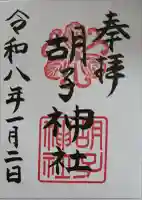 奉拝
胡子神社
令和八年一月二日